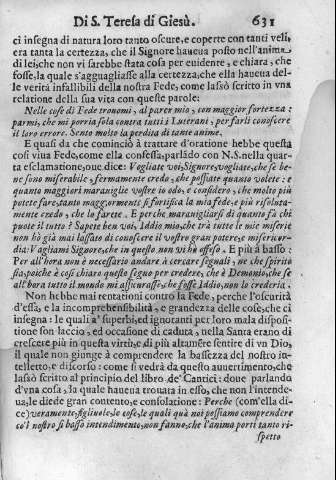 Di S. Teresa di Giesù. 631
ci insegna di natura loro tanto oscure, e coperte con tanti veli,
era tanta la certezza, che il Signore haueua posto nell'anima
di lei, che non vi sarebbe stata cosa per euidente, e chiara, che
fosse, la qual s'agguagliasse alla certezza, che ella haueua del-
le verità infallibili della nostra Fede, come lasciò scritto in vna
relatione della sua vita con queste parole:
Nelle cose di Fede trouomi, al parer mio, con maggior fortezza:
parmi, che mi porria sola contra tutti i Luterani, per farli conoscere
il loro errore. Sento molto la perdita di tante anime.
E quasi da che cominciò a trattare d'oratione hebbe questa
così viua Fede, come ella confessa, parlãdo con N.S. nella quar-
ta esclamatione, oue dice: Vogliate voi, Signore, vogliate, che se be-
ne sono miserabile, fermamente credo, che possiate quanto volete: e
quanto maggiori marauiglie vostre io odo, e considero, che molto più
potete fare, tanto maggiormente si fortifica la mia fede, e più risoluta-
mente credo, che lo farete. E perche marauigliarsi di quanto fà chi
puote il tutto? Sapete ben voi, Iddio mio, che trà tutte le mie miserie
non hò già mai lasciato di conoscere il vostro gran potere, e misericor-
dia: Vagliami Signore, che in questo non vi hò offeso. E più a basso:
Per all'hora non è necessario andare à cercare segnali, ne che spirito
sia, poiche è così chiaro questo segno per credere, che è Demonio, che se
all'hora tutto il mondo mi assicurasse, che fosse Iddio, non lo crederia.
Non hebbe mai tentationi contro la Fede, perche l'oscurità
d'essa, e la incomprehensibilità, e grandezza delle cose, che ci
insegna: le quali a' superbi, ed ignoranti per loro mala dispo-
sitione son laccio, ed occasione di caduta, nella Santa erano di
crescere più in questa virtù, e di più altamẽte sentire di vn Dio,
il quale non giunge à comprendere la bassezza del nostro in-
telletto, e discorso: come si vedrà da questo auuertimento, che
lasciò scritto al principio del libro de' Cantici: doue parlando
d'vna cosa, la quale haueua trouata in esso, che non l'intende-
ua, le diede gran contento, e consolatione: Perche (com'ella di-
ce) veramente, figliuole, le cose, le quali quà noi possiamo comprendere
co'l nostro sì basso intendimento, non fanno, che l'anima porti tanto ri-
spetto